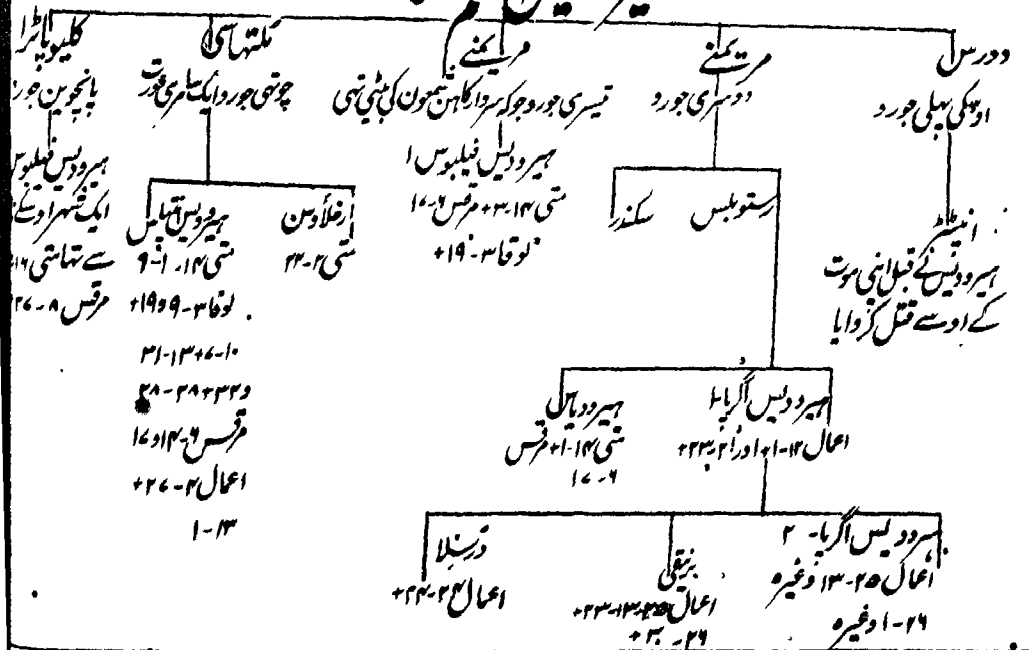 دورس
اوسکی پہلی جورو
انیٹر
ہیرودیس نے قبل اپنی موت
کے اوسے قتل کروایا
مریمنے
دوسری جورو
رستوبلس
سکندر
ہیرودیس اگرپا ۱
اعمال ۱۲-۱+ اور ۲۱-۲۳+
ہیرودیاس
متی ۱۴-۱+ مرقس
۶-۱۷
ہیرودیس اگرپا- ۲
اعمال ۲۵-۱۳ وغیرہ
۲۶-۱ وغیرہ
برنیقی
اعمال ۲۵-۱۳-۲۳+
۲۶-۳۰+
درسلا
اعمال ۲۴-۲۴+
مریمنے
تیسری جورو جو کہ سردار کاہن شمعون کی بیٹی تہی
ہیرودیس فیلبوس ۱
متی ۱۴-۳+ مرقس ۶-۱۷
لوقا ۳-۱۹+
ملتہاسی
چوتہی جورو ایک سامری عورت
ارخلاؤس
متی ۲-۲۲
ہیرودیس انتپاس
متی ۱۴-۱-۹
لوقا ۳-۹و۱۹+
۱۰-۷+۱۳-۳۱
و۳۲+۲۳-۲۸
مرقس ۶-۱۴و۱۷
اعمال ۴-۲۷+
۱۳-۱
کلیوپاٹرا
پانچوین
ہیرودیس فیلبوس
ایک شہر اوسکے
سے تہا متی ۱۶
مرقس ۸-۲۷